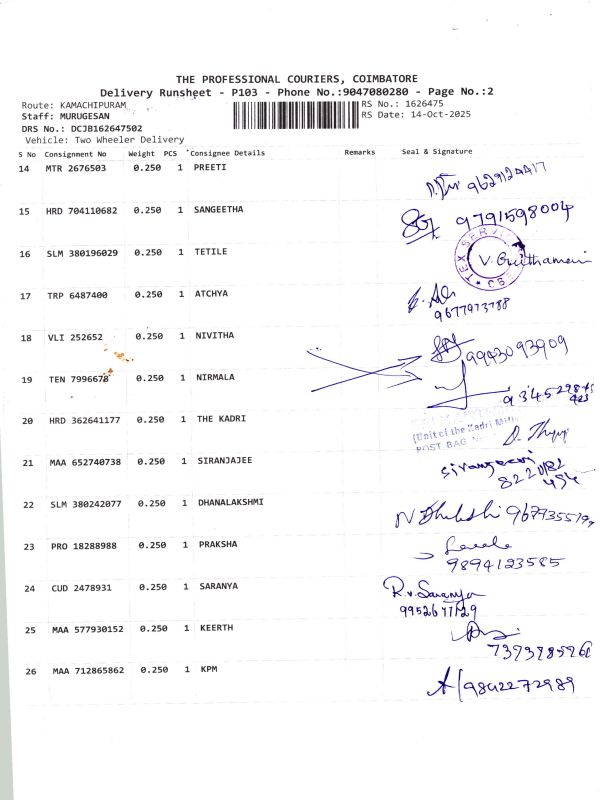 THE PROFESSIONAL COURIERS, COIMBATORE
Delivery Runsheet - P103 - Phone No.:9047080280 - Page No.:2
Route: KAMACHIPURAM
RS No.: 1626475
Staff: MURUGESAN
RS Date: 14-Oct-2025
DRS No.: DCJB162647502
Vehicle: Two Wheeler Delivery
S No Consignment No Weight PCS Consignee Details Remarks Seal & Signature
14 MTR 2676503 0.250 1 PREETI
15 HRD 704110682 0.250 1 SANGEETHA 9791598004
16 SLM 380196029 0.250 1 TETILE
TEX SERVI
17 TRP 6487400 0.250 1 ATCHYA
9677973788
18 VLI 252652 0.250 1 NIVITHA 9943093909
19 TEN 7996678 0.250 1 NIRMALA
20 HRD 362641177 0.250 1 THE KADRI
(Unit of the Kadri Mills
POST BAG
21 MAA 652740738 0.250 1 SIRANJAJEE
22 SLM 380242077 0.250 1 DHANALAKSHMI
23 PRO 18288988 0.250 1 PRAKSHA
9894123585
24 CUD 2478931 0.250 1 SARANYA R.v. Saranya
25 MAA 577930152 0.250 1 KEERTH
26 MAA 712865862 0.250 1 KPM 9842272989